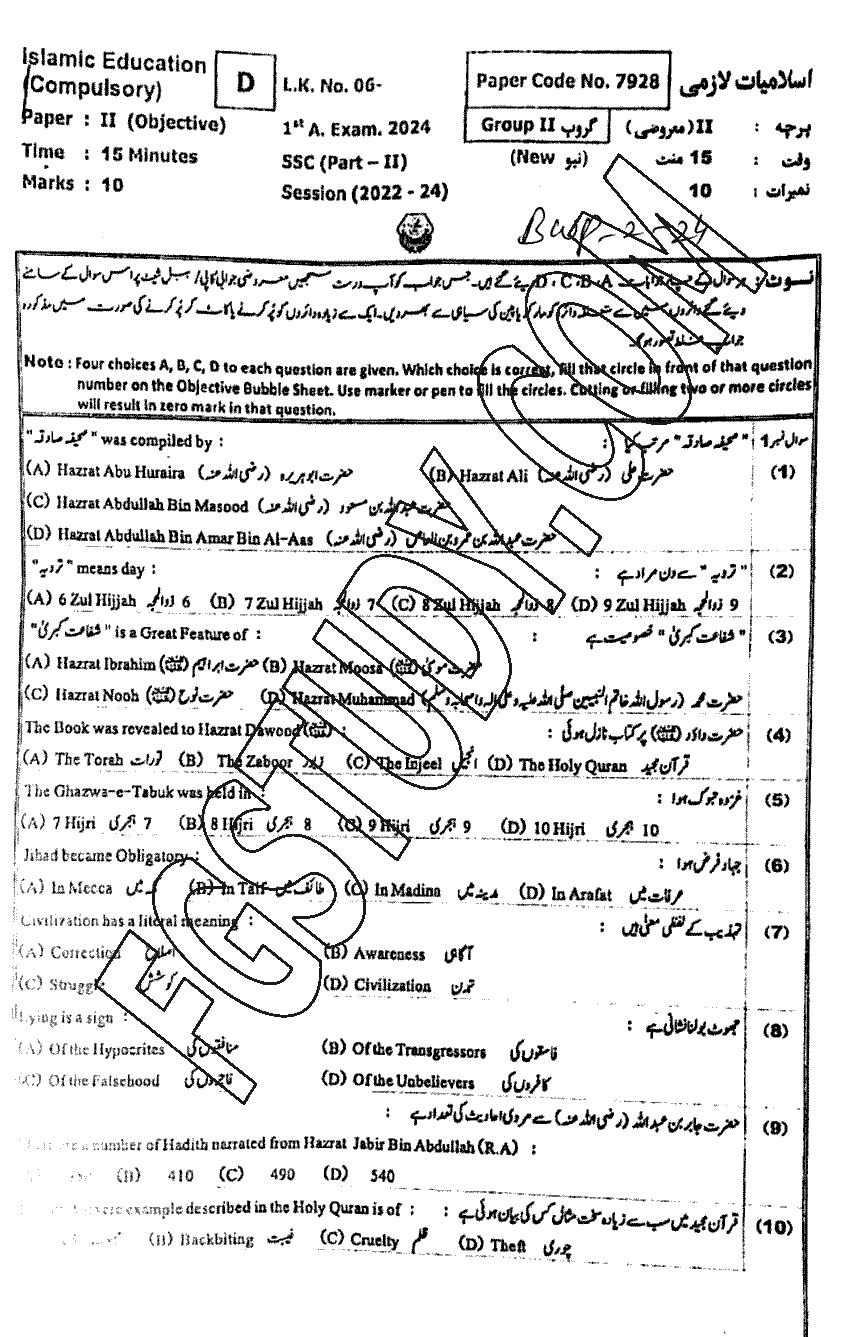 Islamic Education
(Compulsory)
D
L.K. No. 06-
Paper Code No. 7928
اسلامیات لازمی
Paper : II (Objective)
1st A. Exam. 2024
Group II گروپ
پرچہ : II (معروضی)
Time : 15 Minutes
SSC (Part – II)
(New نیو)
وقت : 15 منٹ
Marks : 10
Session (2022 - 24)
نمبرات : 10
Bwp-2-24
نوٹ : ہر سوال کے چار جوابات D ، C ، B ، A دیئے گئے ہیں۔ جس جواب کو آپ درست سمجھیں معروضی جوابی کاپی / ببل شیٹ پر اس سوال کے سامنے
دیئے گئے دائروں میں سے متعلقہ دائرہ کو مارکر یا پین کی سیاہی سے بھر دیں۔ ایک سے زیادہ دائروں کو پُر کرنے یا کاٹ کر پُر کرنے کی صورت میں مذکورہ
جواب غلط تصور ہو گا۔
Note : Four choices A, B, C, D to each question are given. Which choice is correct, fill that circle in front of that question
number on the Objective Bubble Sheet. Use marker or pen to fill the circles. Cutting or filling two or more circles
will result in zero mark in that question.
"صحیفہ صادقہ" was compiled by :
"صحیفہ صادقہ" مرتب کیا :
سوال نمبر 1
(1)
(A) Hazrat Abu Huraira حضرت ابو ہریرہ (رضی اللہ عنہ) (B) Hazrat Ali حضرت علی (رضی اللہ عنہ)
(C) Hazrat Abdullah Bin Masood حضرت عبداللہ بن مسعود (رضی اللہ عنہ)
(D) Hazrat Abdullah Bin Amar Bin Al-Aas حضرت عبداللہ بن عمرو بن العاص (رضی اللہ عنہ)
"ترویہ" means day :
"ترویہ" سے دن مراد ہے :
(2)
(A) 6 Zul Hijjah 6 ذوالحجہ (B) 7 Zul Hijjah 7 ذوالحجہ (C) 8 Zul Hijjah 8 ذوالحجہ (D) 9 Zul Hijjah 9 ذوالحجہ
"شفاعت کبریٰ" is a Great Feature of :
"شفاعت کبریٰ" خصوصیت ہے :
(3)
(A) Hazrat Ibrahim حضرت ابراہیم (B) Hazrat Moosa حضرت موسیٰ
(C) Hazrat Nooh حضرت نوح (D) Hazrat Muhammad حضرت محمد (رسول اللہ خاتم النبیین صلی اللہ علیہ وعلیٰ آلہ واصحابہ وسلم)
The Book was revealed to Hazrat Dawood :
حضرت داؤد پر کتاب نازل ہوئی :
(4)
(A) The Torah تورات (B) The Zaboor زبور (C) The Injeel انجیل (D) The Holy Quran قرآن مجید
The Ghazwa-e-Tabuk was held in :
غزوہ تبوک ہوا :
(5)
(A) 7 Hijri 7 ہجری (B) 8 Hijri 8 ہجری (C) 9 Hijri 9 ہجری (D) 10 Hijri 10 ہجری
Jihad became Obligatory :
جہاد فرض ہوا :
(6)
(A) In Mecca مکہ میں (B) In Taif طائف میں (C) In Madina مدینہ میں (D) In Arafat عرفات میں
Civilization has a literal meaning :
تہذیب کے لفظی معنی ہیں :
(7)
(A) Correction اصلاح (B) Awareness آگاہی
(C) Struggle کوشش (D) Civilization تمدن
Lying is a sign :
جھوٹ بولنا نشانی ہے :
(8)
(A) Of the Hypocrites منافقوں کی (B) Of the Transgressors فاسقوں کی
(C) Of the Falsehood فاجروں کی (D) Of the Unbelievers کافروں کی
حضرت جابر بن عبداللہ (رضی اللہ عنہ) سے مروی احادیث کی تعداد ہے :
(9)
a number of Hadith narrated from Hazrat Jabir Bin Abdullah (R.A) :
(B) 410 (C) 490 (D) 540
example described in the Holy Quran is of :
قرآن مجید میں سب سے زیادہ سخت مثال کس کی بیان ہوئی ہے :
(10)
(B) Backbiting غیبت (C) Cruelty ظلم (D) Theft چوری
FGSTUDY.COM